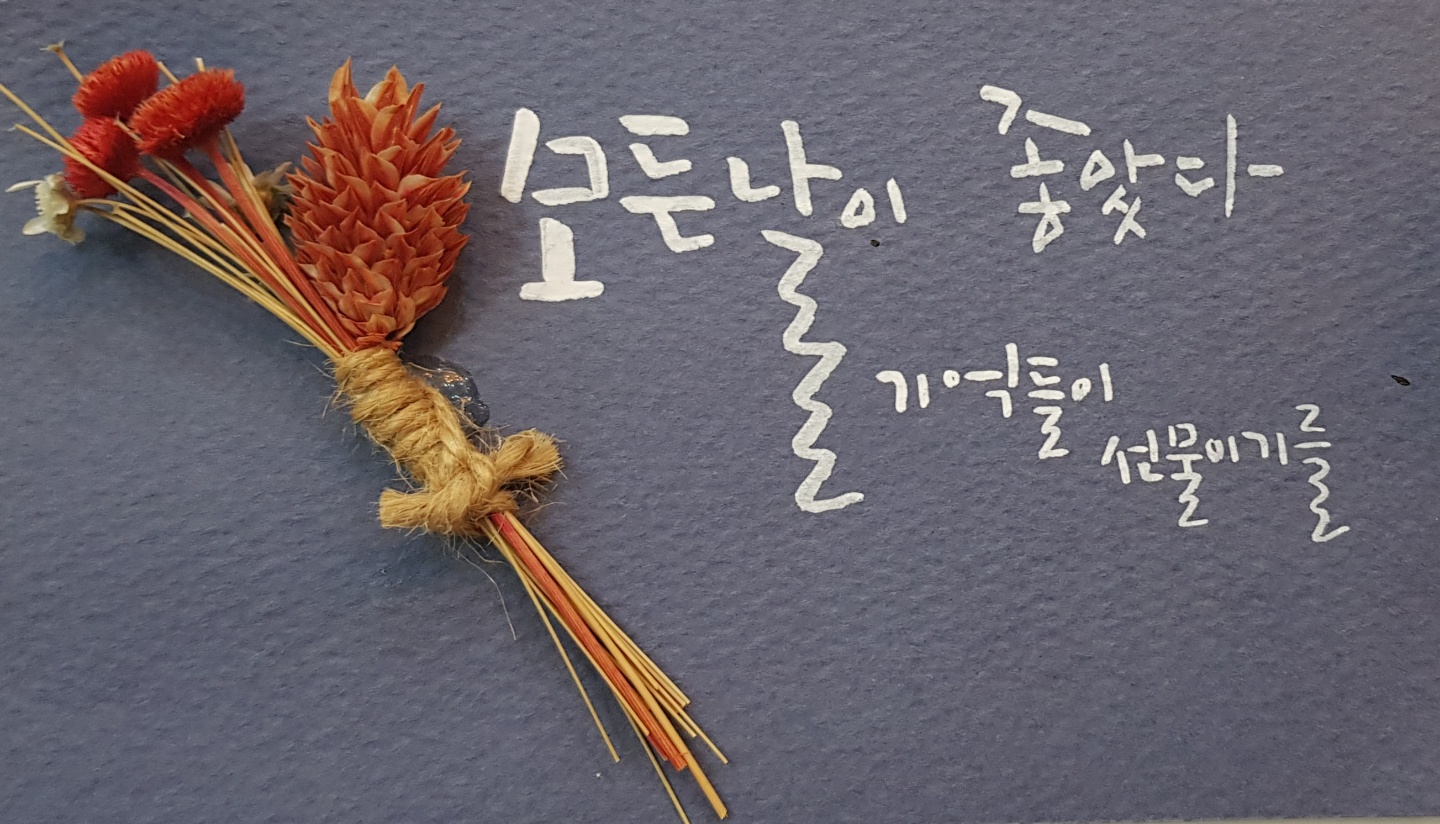 모든 날이 좋았다
기억들이
선물이기를